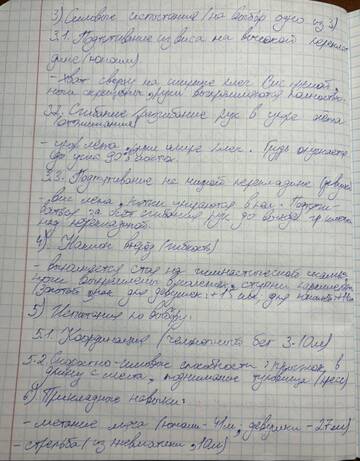 3) Силовые испытания (на выбор одно из 3)
3.1. Подтягивание из виса на высокой перекла-
дине (юноши)
- Хват сверху на ширине плеч. Вис прямой,
ноги скрещены, руки выпрямляются полностью.
3.2. Сгибание разгибание рук в упоре лёжа
(отжимания)
- упор лёжа, руки шире плеч. Грудь опускается
до угла 90° в локтях.
3.3. Подтягивание на низкой перекладине
- вис лёжа, пятки упираются в пол.
за счёт сгибания рук до
над перекладиной.
4) Наклон вперёд (гибкость)
- выполняется стоя на гимнастической скамье,
ноги выпрямлены в коленях, ступни параллельно
для девушек: +15 см, для юношей +
5) Испытания по выбору:
5.1. Координация (челночный бег 3·10м)
5.2 Скоростно-силовые способности: прыжок в
длину с места, поднимание туловища (пресс)
6) Прикладные навыки:
- метание мяча (юноши - 41м, девушки - 27м)
- стрельба (из пневматики, 10м)